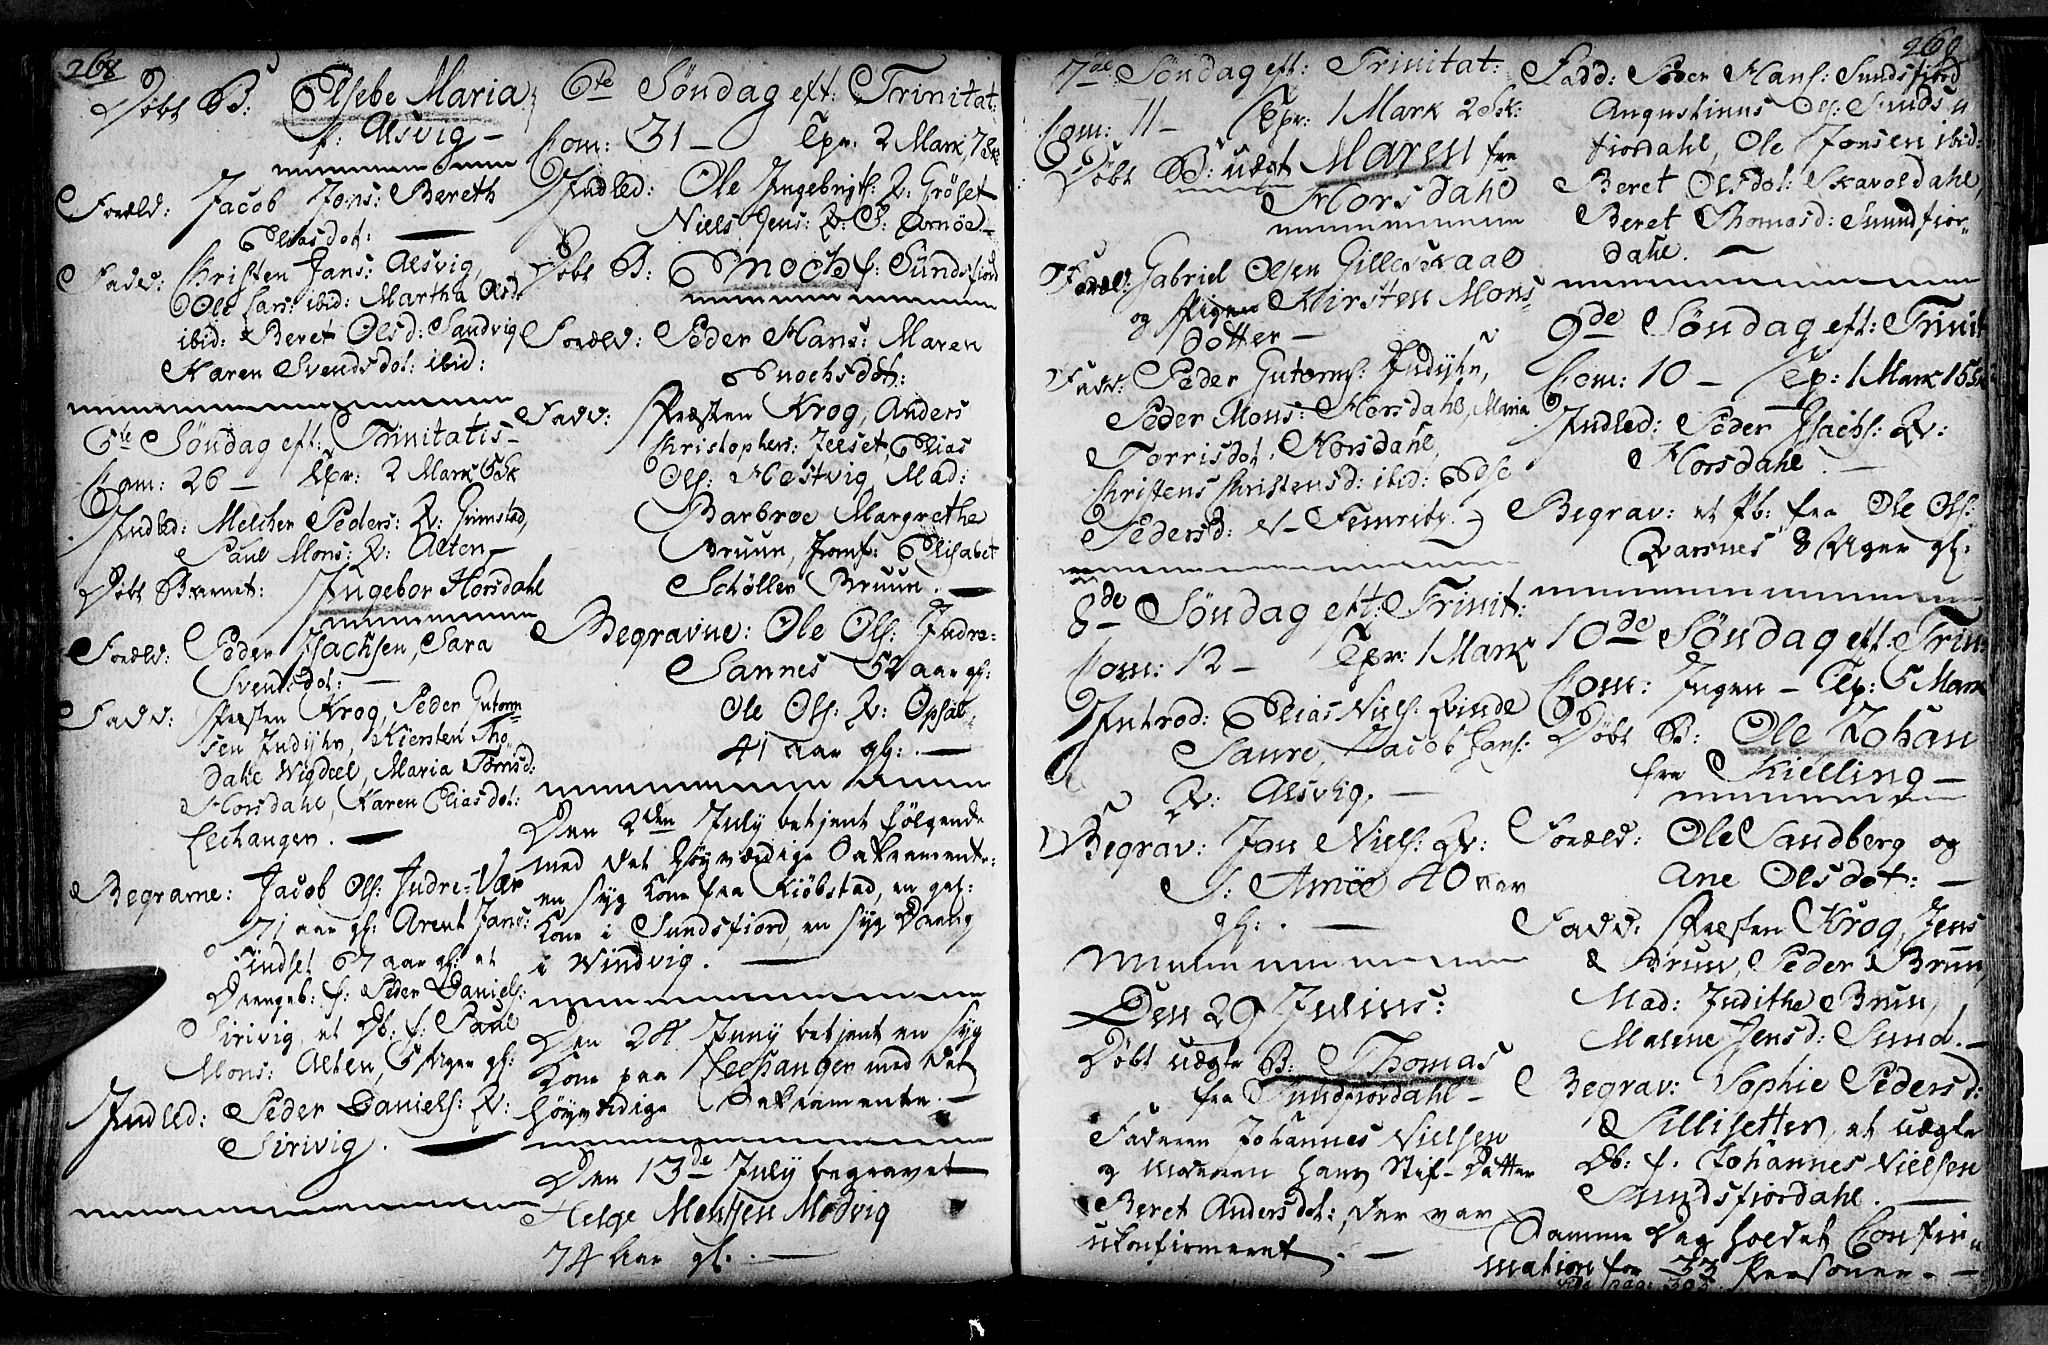 268
Døbt B: Elsebe Maria
f: Alsvig –
Foræld: Jacob Jons: Bereth
Eliasdot:
Fadd: Christen Jans: Alsvig,
Ole Lars: ibid: Martha Olsd:
ibid: Beret Olsd: Sandvig
Karen Svendsdot: ibid:
5te Søndag eft: Trinitatis –
Com: 26 – Tpr: 2 Mark 6 sk
Indled: Melcher Peders: Q: Grimstad,
Paul Mons: Q: Alten –
Døbt Barnet: Ingebor Horsdahl
Foræld: Peder Isachsen, Sara
Svendsdot: –
Fadd: Præsten Krog, Peder Gutorm
sen Indijhr, Kiersten Tho
Dahe Wigdeel, Maria Torrisd:
Horsdahl, Karen Eliasdot:
Lechangen. –
Begravne: Jacob Ols: Indre-Vær
71 aar gl: Arent Jans:
Findset 67 aar gl: et
Drengeb: f: Peder Daniels:
Sirivig, et Db: f: Paul
Mons: Alten, 5 Uger gl:
Indled: Peder Daniels: Q:
Sirivig. –
6te Søndag eft: Trinitat:
Com: 31 – Tpr: 2 Mark, 7 sk
Indled: Ole Ingebrigts: Q: Grøset
Niels Jens: Q: S: Arnøe –
Døbt B: Enoch f: Sundsfiord
Foræld: Peder Hans: Maren
Enochsdot:
Fadd: Præsten Krog, Anders
Christophers: Jelset, Elias
Ols: Hestvig, Mad:
Barbroe Margrethe
Bruun, Jomf: Elisabet
Schøller Bruun. –
Begravne: Ole Ols: Indre-
Sannes 52 aar gl:
Ole Ols: Q: Opsal
41 aar gl: –
Den 2den July betjent følgende
med det Høyværdige Sakramente:
en syg Kone fra Kiøbstad, en gl:
Kone i Sundsfiord, en syg Dreng
i Windvig. –
Den 24 Juny betjent en syg
Kone paa Lechangen med det
høyværdige Sakramente. –
Den 13de July begravet
Helge Mentsen Mødvig
74 Aar gl. –
269
7de Søndag eft: Trinitat:
Com: 11 – Tpr: 1 Mark 2 sk:
Døbt B: uægt Maren fra
Horsdahl
Foræld: Gabriel Olsen Gilleskaal
og Pigen Kirsten Mons
dotter –
Fadd: Peder Gutorms: Indijhr,
Peder Mons: Horsdahl, Maria
Torrisdot: Horsdahl,
Christens Christensd: ibid: Else
Pedersd: N– Femriby.
8de Søndag eft: Trinit:
Com: 12 – Tpr: 1 Mark
Introd: Elias Niels: Qvinde
Saure, Jacob Jans:
Q: Alsvig. –
Begrav: Jon Niels: Qv:
S: Arnøe 40 aar
gl: –
Den 29 Julius:
Døbt uægte B: Thomas
fra Sundfiordahl –
Faderen Johannes Nielsen
og Moderen hans Stif-Datter
Beret Andersdot: der var
ukonfirmeret. –
Fadd: Peder Hans: Sundsfiord
Augustinus Ols: Sunds
fiordahl, Ole Jonsen ibid:
Beret Olsdot: Skavoldahl,
Beret Thomasd: Sundfior-
dahl. –
9de Søndag eft: Trinit
Com: 10 – Tp: 1 Mark 15 sk
Indled: Peder Isachs: Q:
Horsdahl. –
Begrav: et Pb: fra Ole Ols:
Qvarsnes 8 Uger gl:
10de Søndag eft: Trin:
Com: Ingen – Tp: 5 Mark
Døbt B: Ole Johan
fra Kielling –
Foræld: Ole Sandberg og
Ane Olsdot: –
Fadd: Præsten Krog, Jens
Bruun, Peder Brun
Mad: Judithe Brun,
Malene Jensd: Sund. –
Begrav: Sophie Pedersd:
Sillisetter, et uægte
Db: f: Johannes Nielsen
Sundsfiordahl. –
Samme Dag holdet Confir
mation for 33 Personer. –
vide pag: 303.